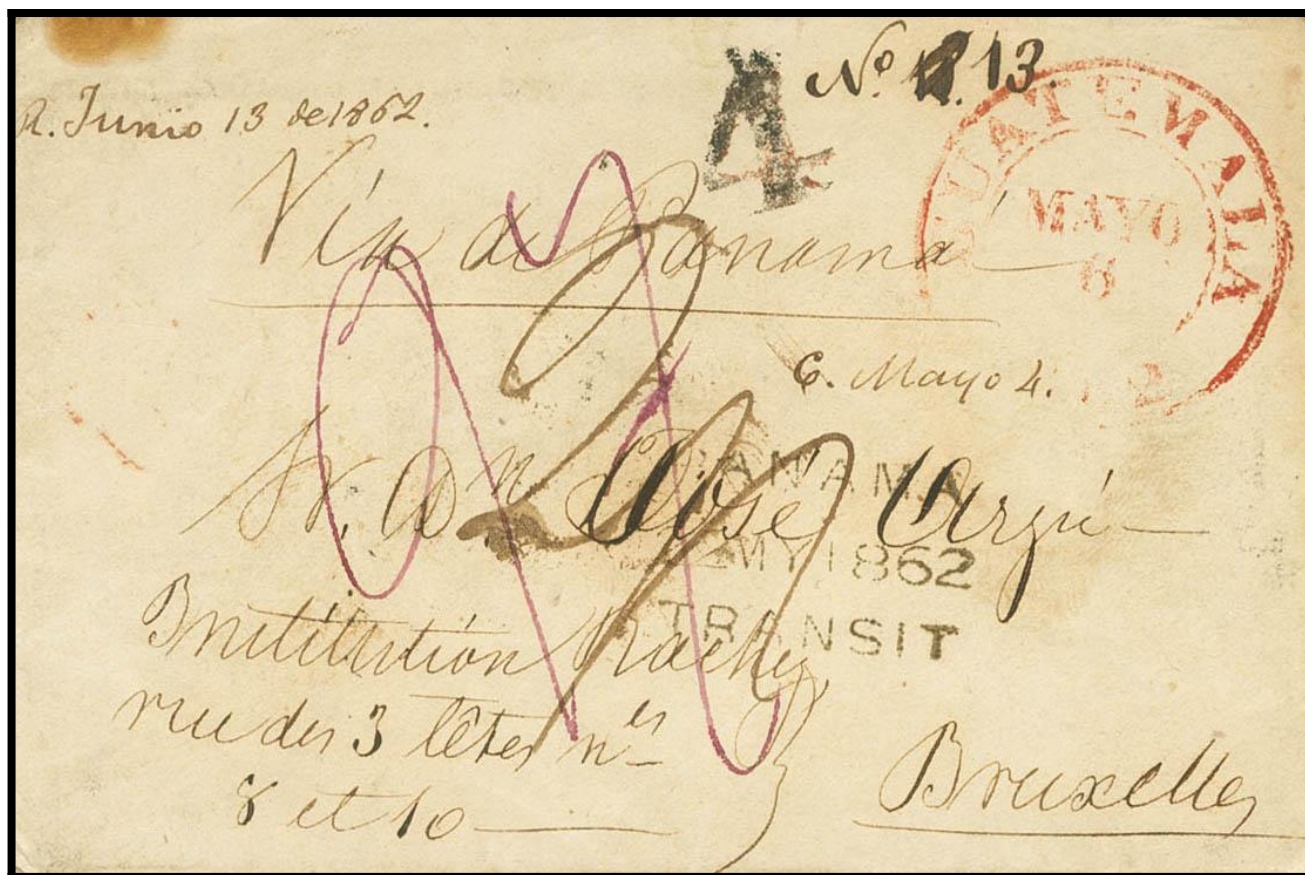 Nº 13.
R. Junio 13 de 1862.
4
GUATEMALA
MAYO
6
Vía de Panamá
C. Mayo 4.
Sr. Dn. José Arzú
PANAMA
MY 1862
TRANSIT
Institution
rue des 3 têtes nos
8 et 10
Bruxelles